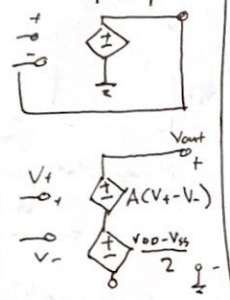 +
-
±
Vout
+
V+
+
±
A(V+-V-)
V-
±
VDD-VSS
2
-